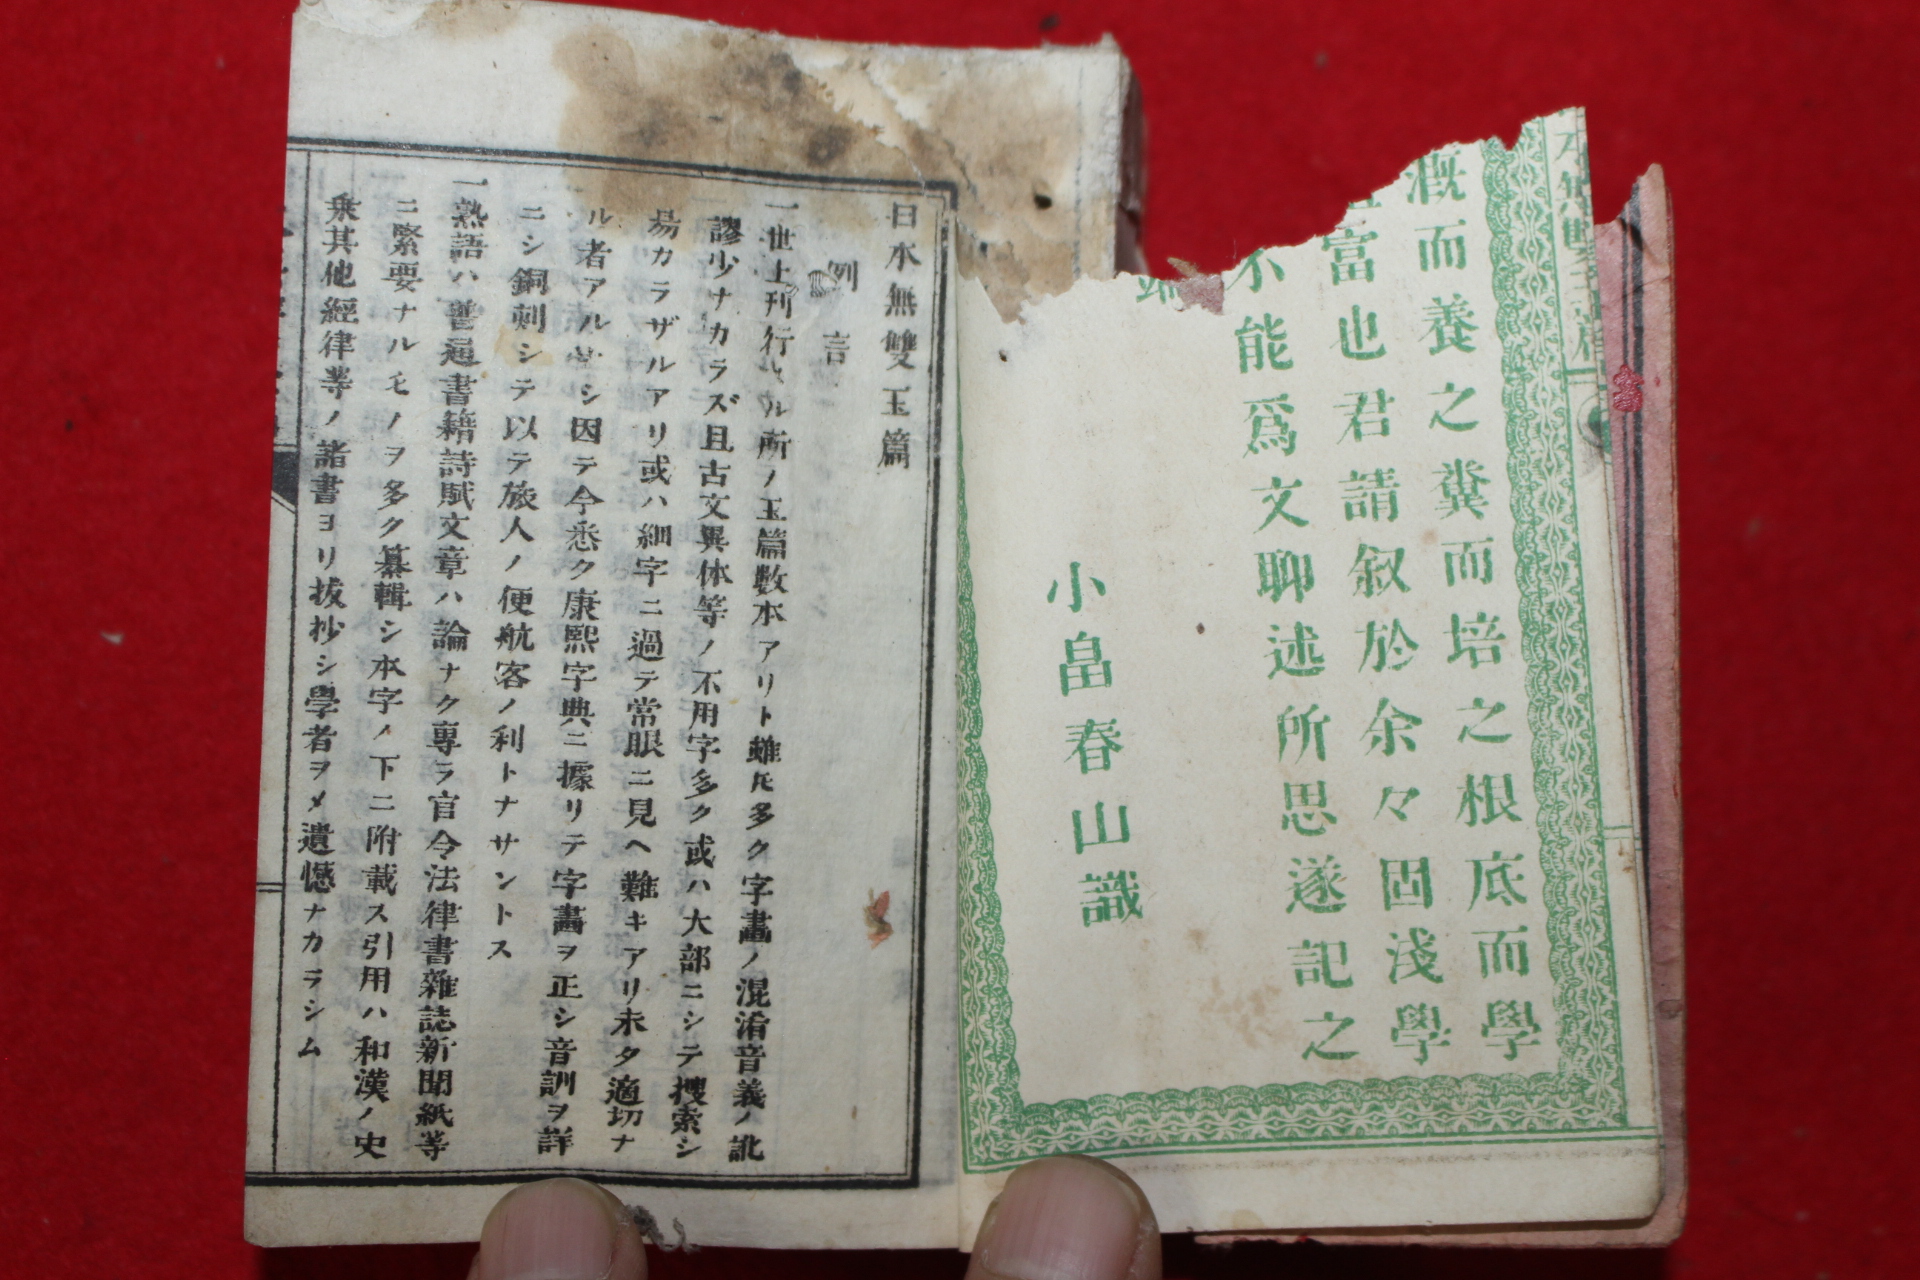 漑而養之糞而培之根底而學
富也君請叙於余々固淺學
不能爲文聊述所思遂記之
小畠春山識
日本無雙玉篇
例言
一世上刊行スル所ノ玉篇數本アリト雖𪜈多ク字畫ノ混淆音義ノ訛
謬少ナカラズ且古文異体等ノ不用字多ク或ハ大部ニシテ捜索シ
易カラザルアリ或ハ細字ニ過テ常眼ニ見ヘ難キアリ未タ適切ナ
ル者アル尐シ因テ今悉ク康熙字典ニ據リテ字畫ヲ正シ音訓ヲ詳
ニシ銅刻シテ以テ旅人ノ便航客ノ利トナサントス
一熟語ハ普通書籍詩賦文章ハ論ナク專ラ官令法律書雜誌新聞紙等
ニ緊要ナルモノヲ多ク纂輯シ本字ノ下ニ附載ス引用ハ和漢ノ史
乘其他經律等ノ諸書ヨリ抜抄シ學者ヲメ遺憾ナカラシム